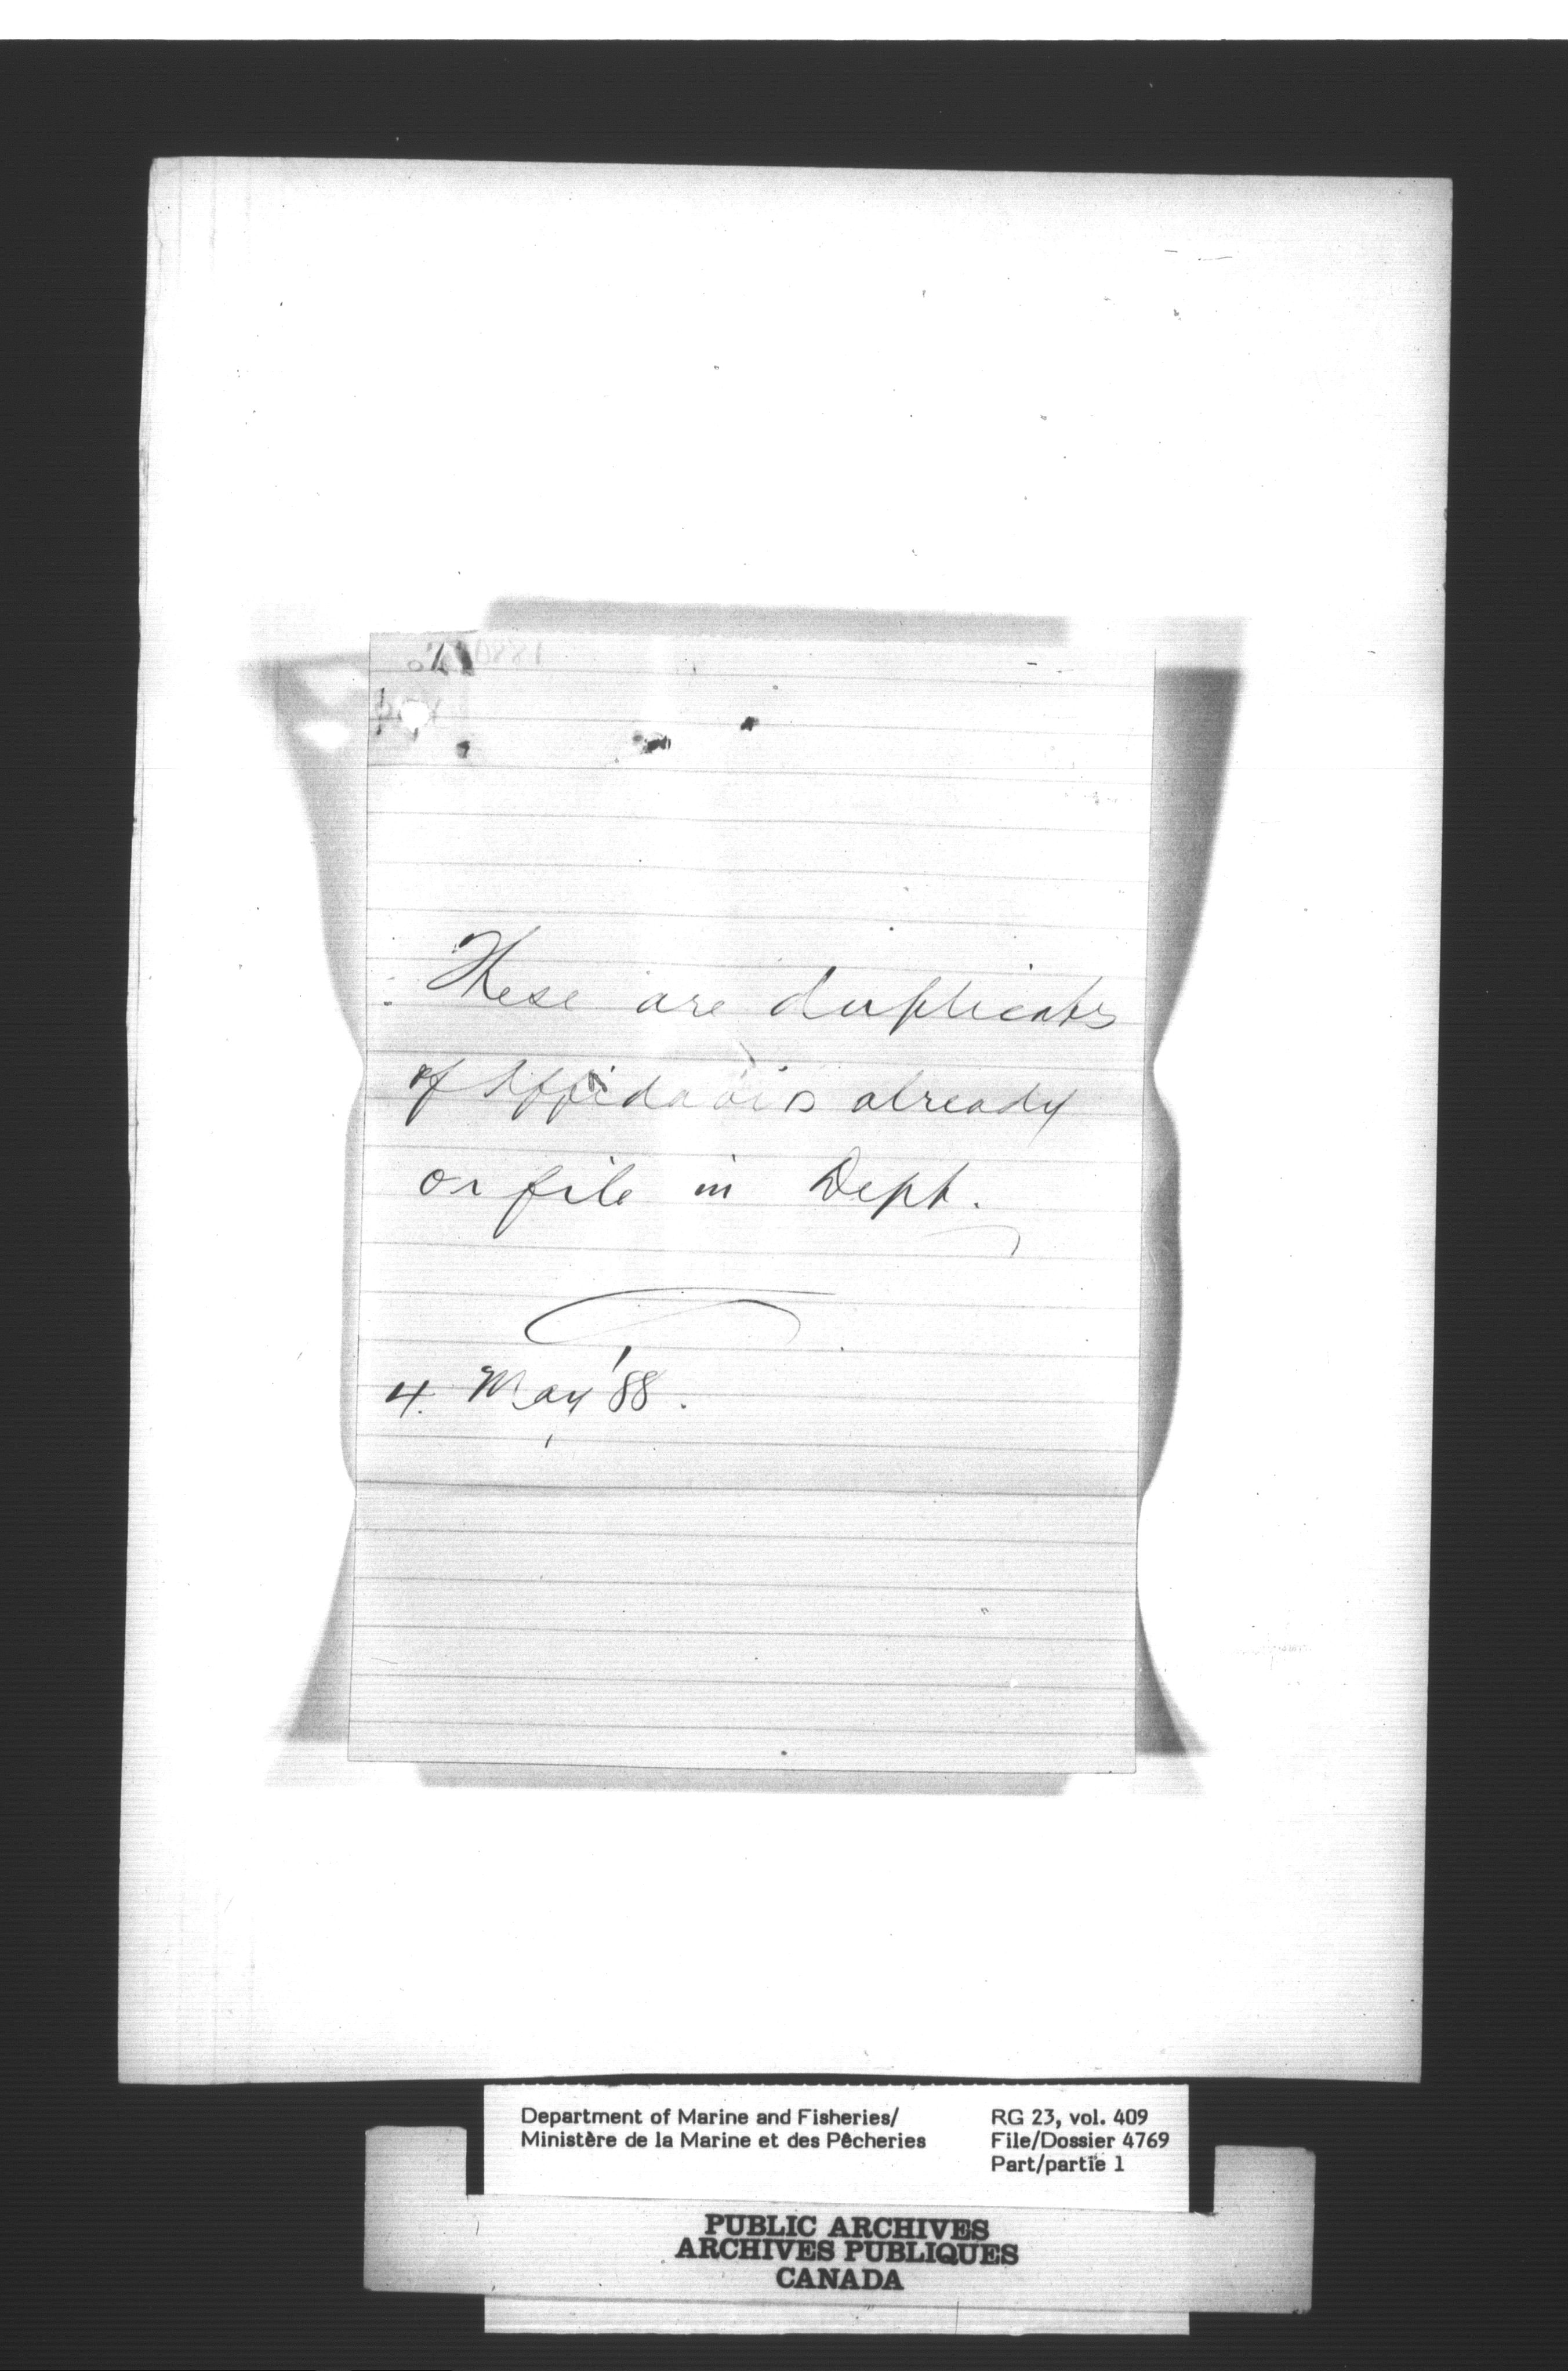 These are duplicates
of Affidavits already
on file in Dept.
4. May '88.
Department of Marine and Fisheries/
Ministère de la Marine et des Pêcheries
RG 23, vol. 409
File/Dossier 4769
Part/partie 1
PUBLIC ARCHIVES
ARCHIVES PUBLIQUES
CANADA